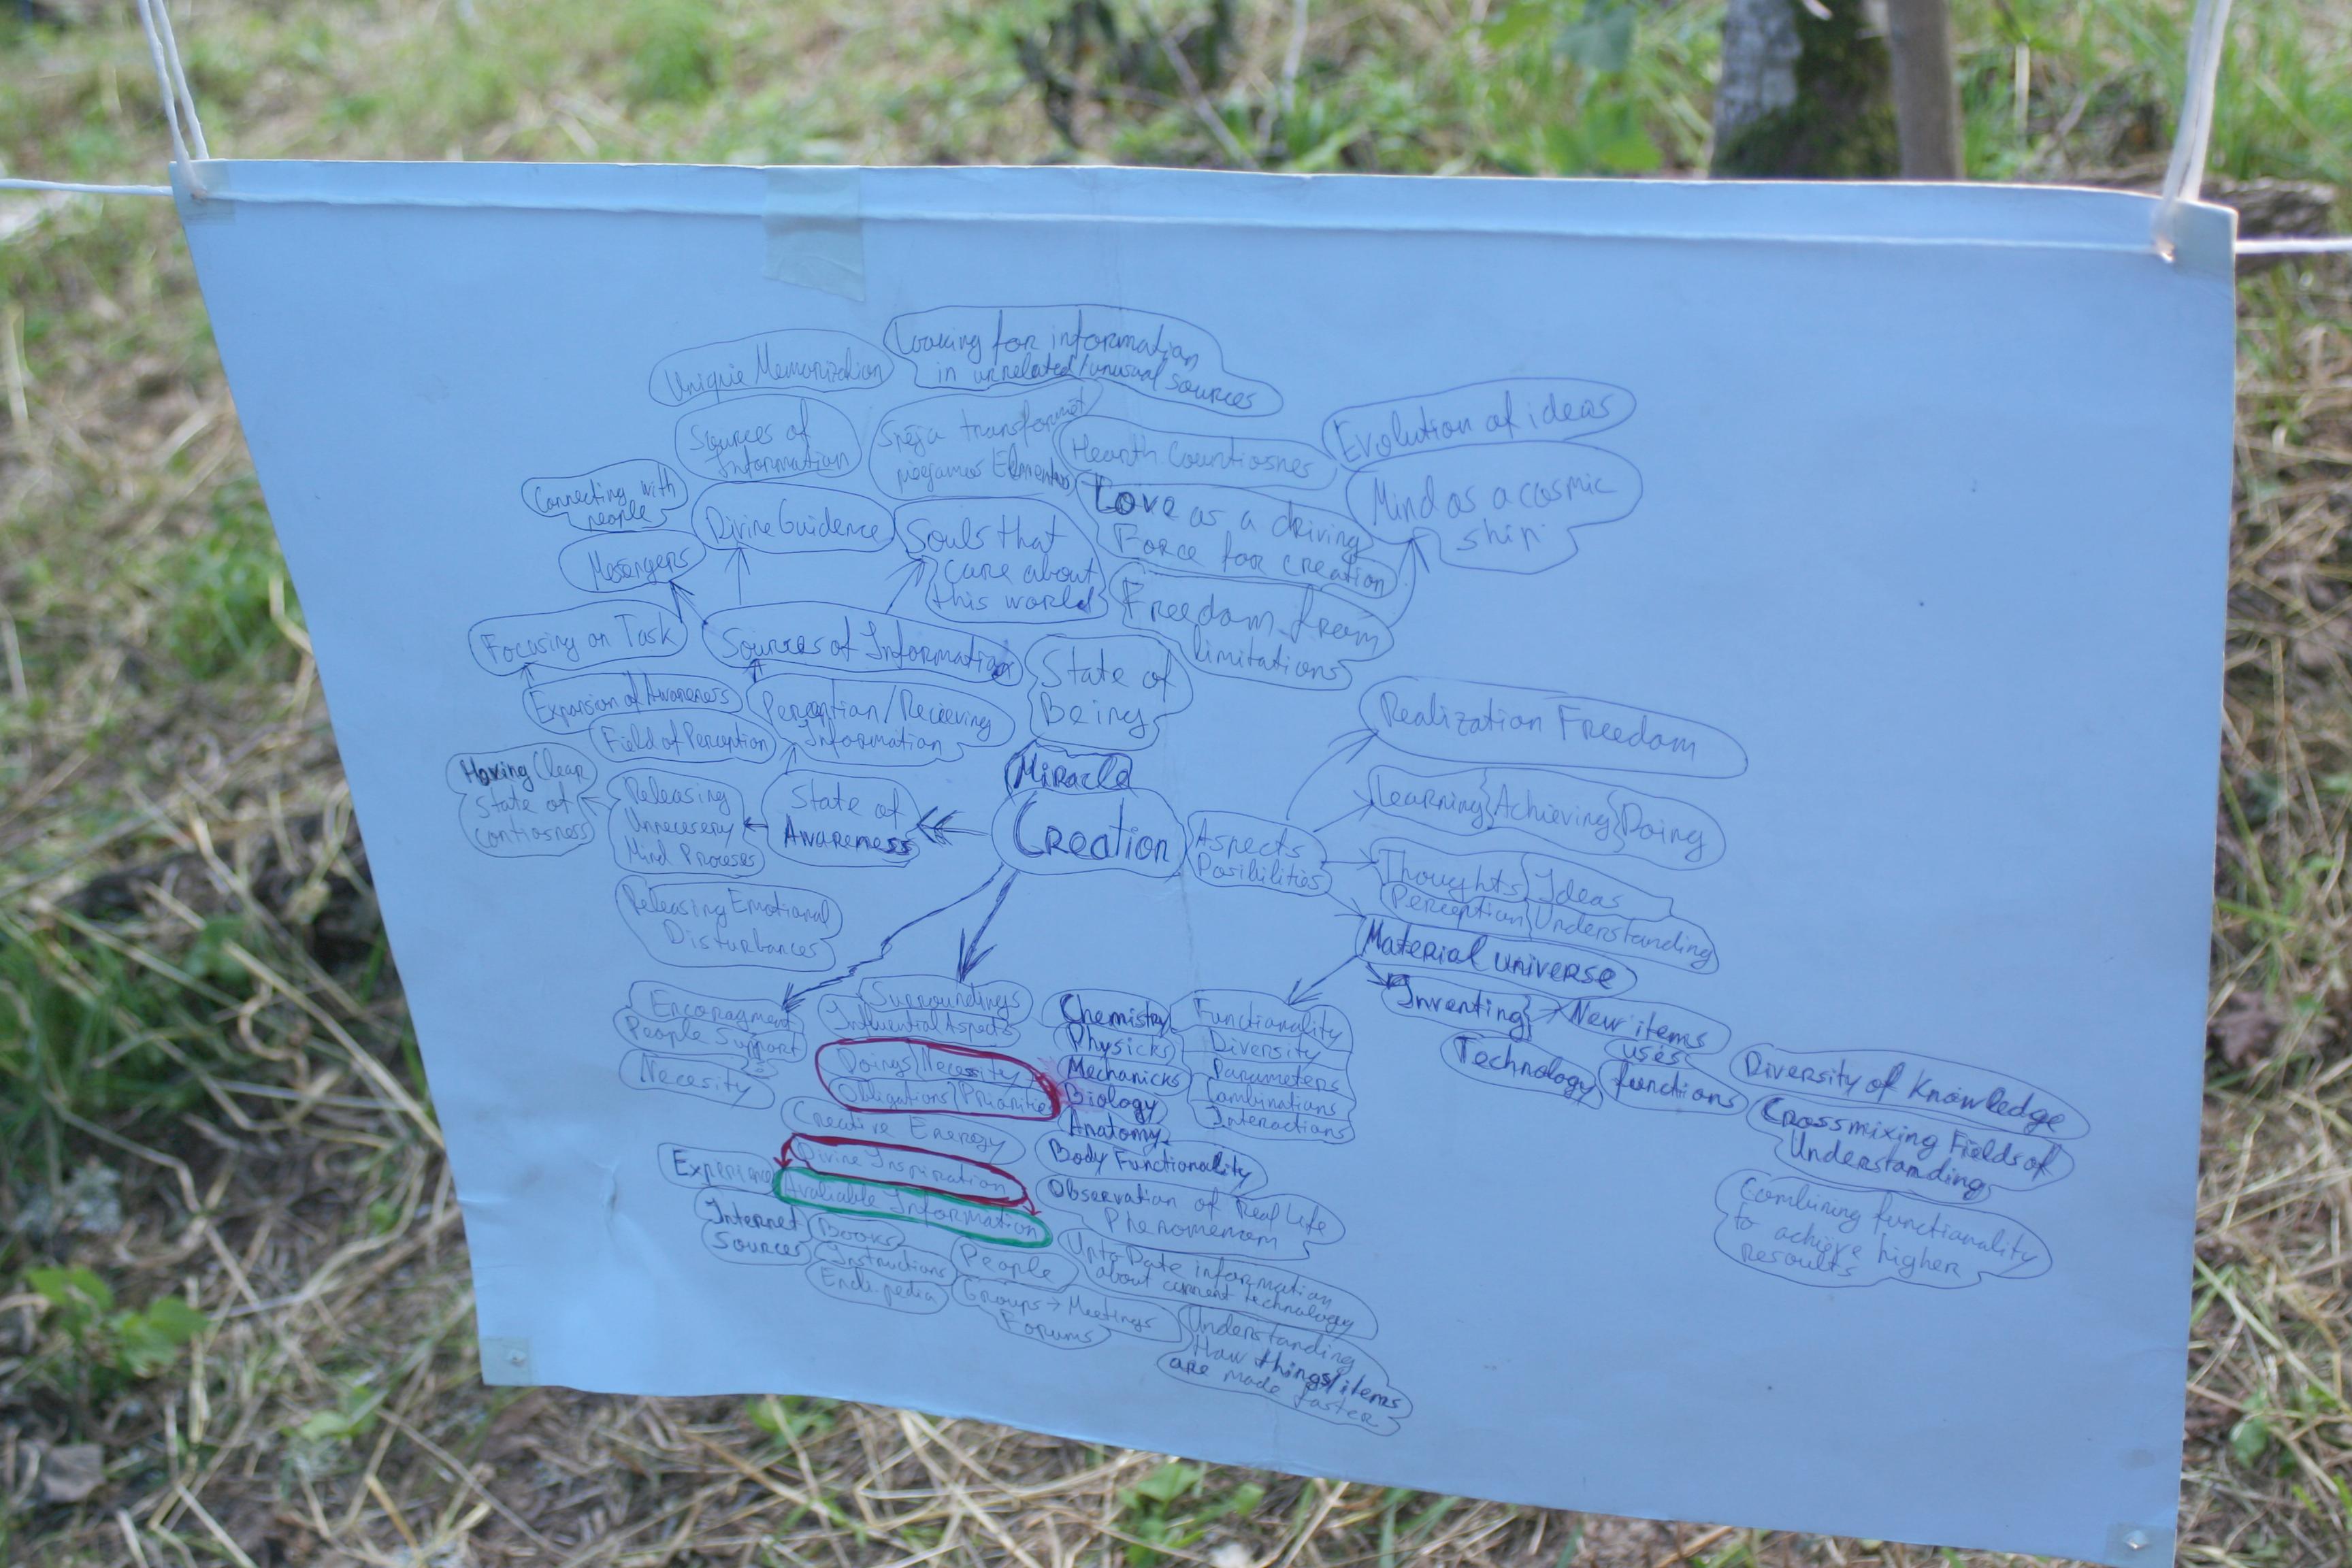 Looking for information
in unrelated/unusual sources
Unique Memorization
Sources of
Information
Spēja transformēt
pieejamos Elementus
Hearth Countiosnes
Evolution of ideas
Mind as a cosmic
ship
Connecting with
people
Divine Guidence
Souls that
care about
this world
Love as a driving
Force for creation
Mesengers
Freedom from
limitations
Focusing on Task
Sources of Information
State of
Being
Expansion of Awareness
Field of Perception
Perception/Recieving
Information
Realization Freedom
Having Clear
State of
Contiosness
Releasing
Unnecesery
Mind Proceses
State of
Awareness
Miracle
Creation
Aspects
Posibilities
Learning Achieving Doing
Thoughts Ideas
Perception Understanding
Releasing Emotional
Disturbances
Material universe
Inventing New items
uses
functions
Technology
Encoragment
People Support
Necesity
Surroundings
Influential Aspects
Doings Necessity
Obligations Priorities
Creative Energy
Divine Inspiration
Avaliable Information
Chemistry
Physicks
Mechanicks
Biology
Anatomy
Body Functionality
Functionality
Diversity
Parameters
Combinations
Interactions
Diversity of Knowledge
Crossmixing Fields of
Understanding
Combining functionality
to achieve higher
resoults
Experience
Internet
Sources
Books
Instructions
Encikpedia
People
Groups → Meetings
Forums
Observation of Real Life
Phenomenom
Upto Date information
about current technology
Understanding
How things/items
are made faster